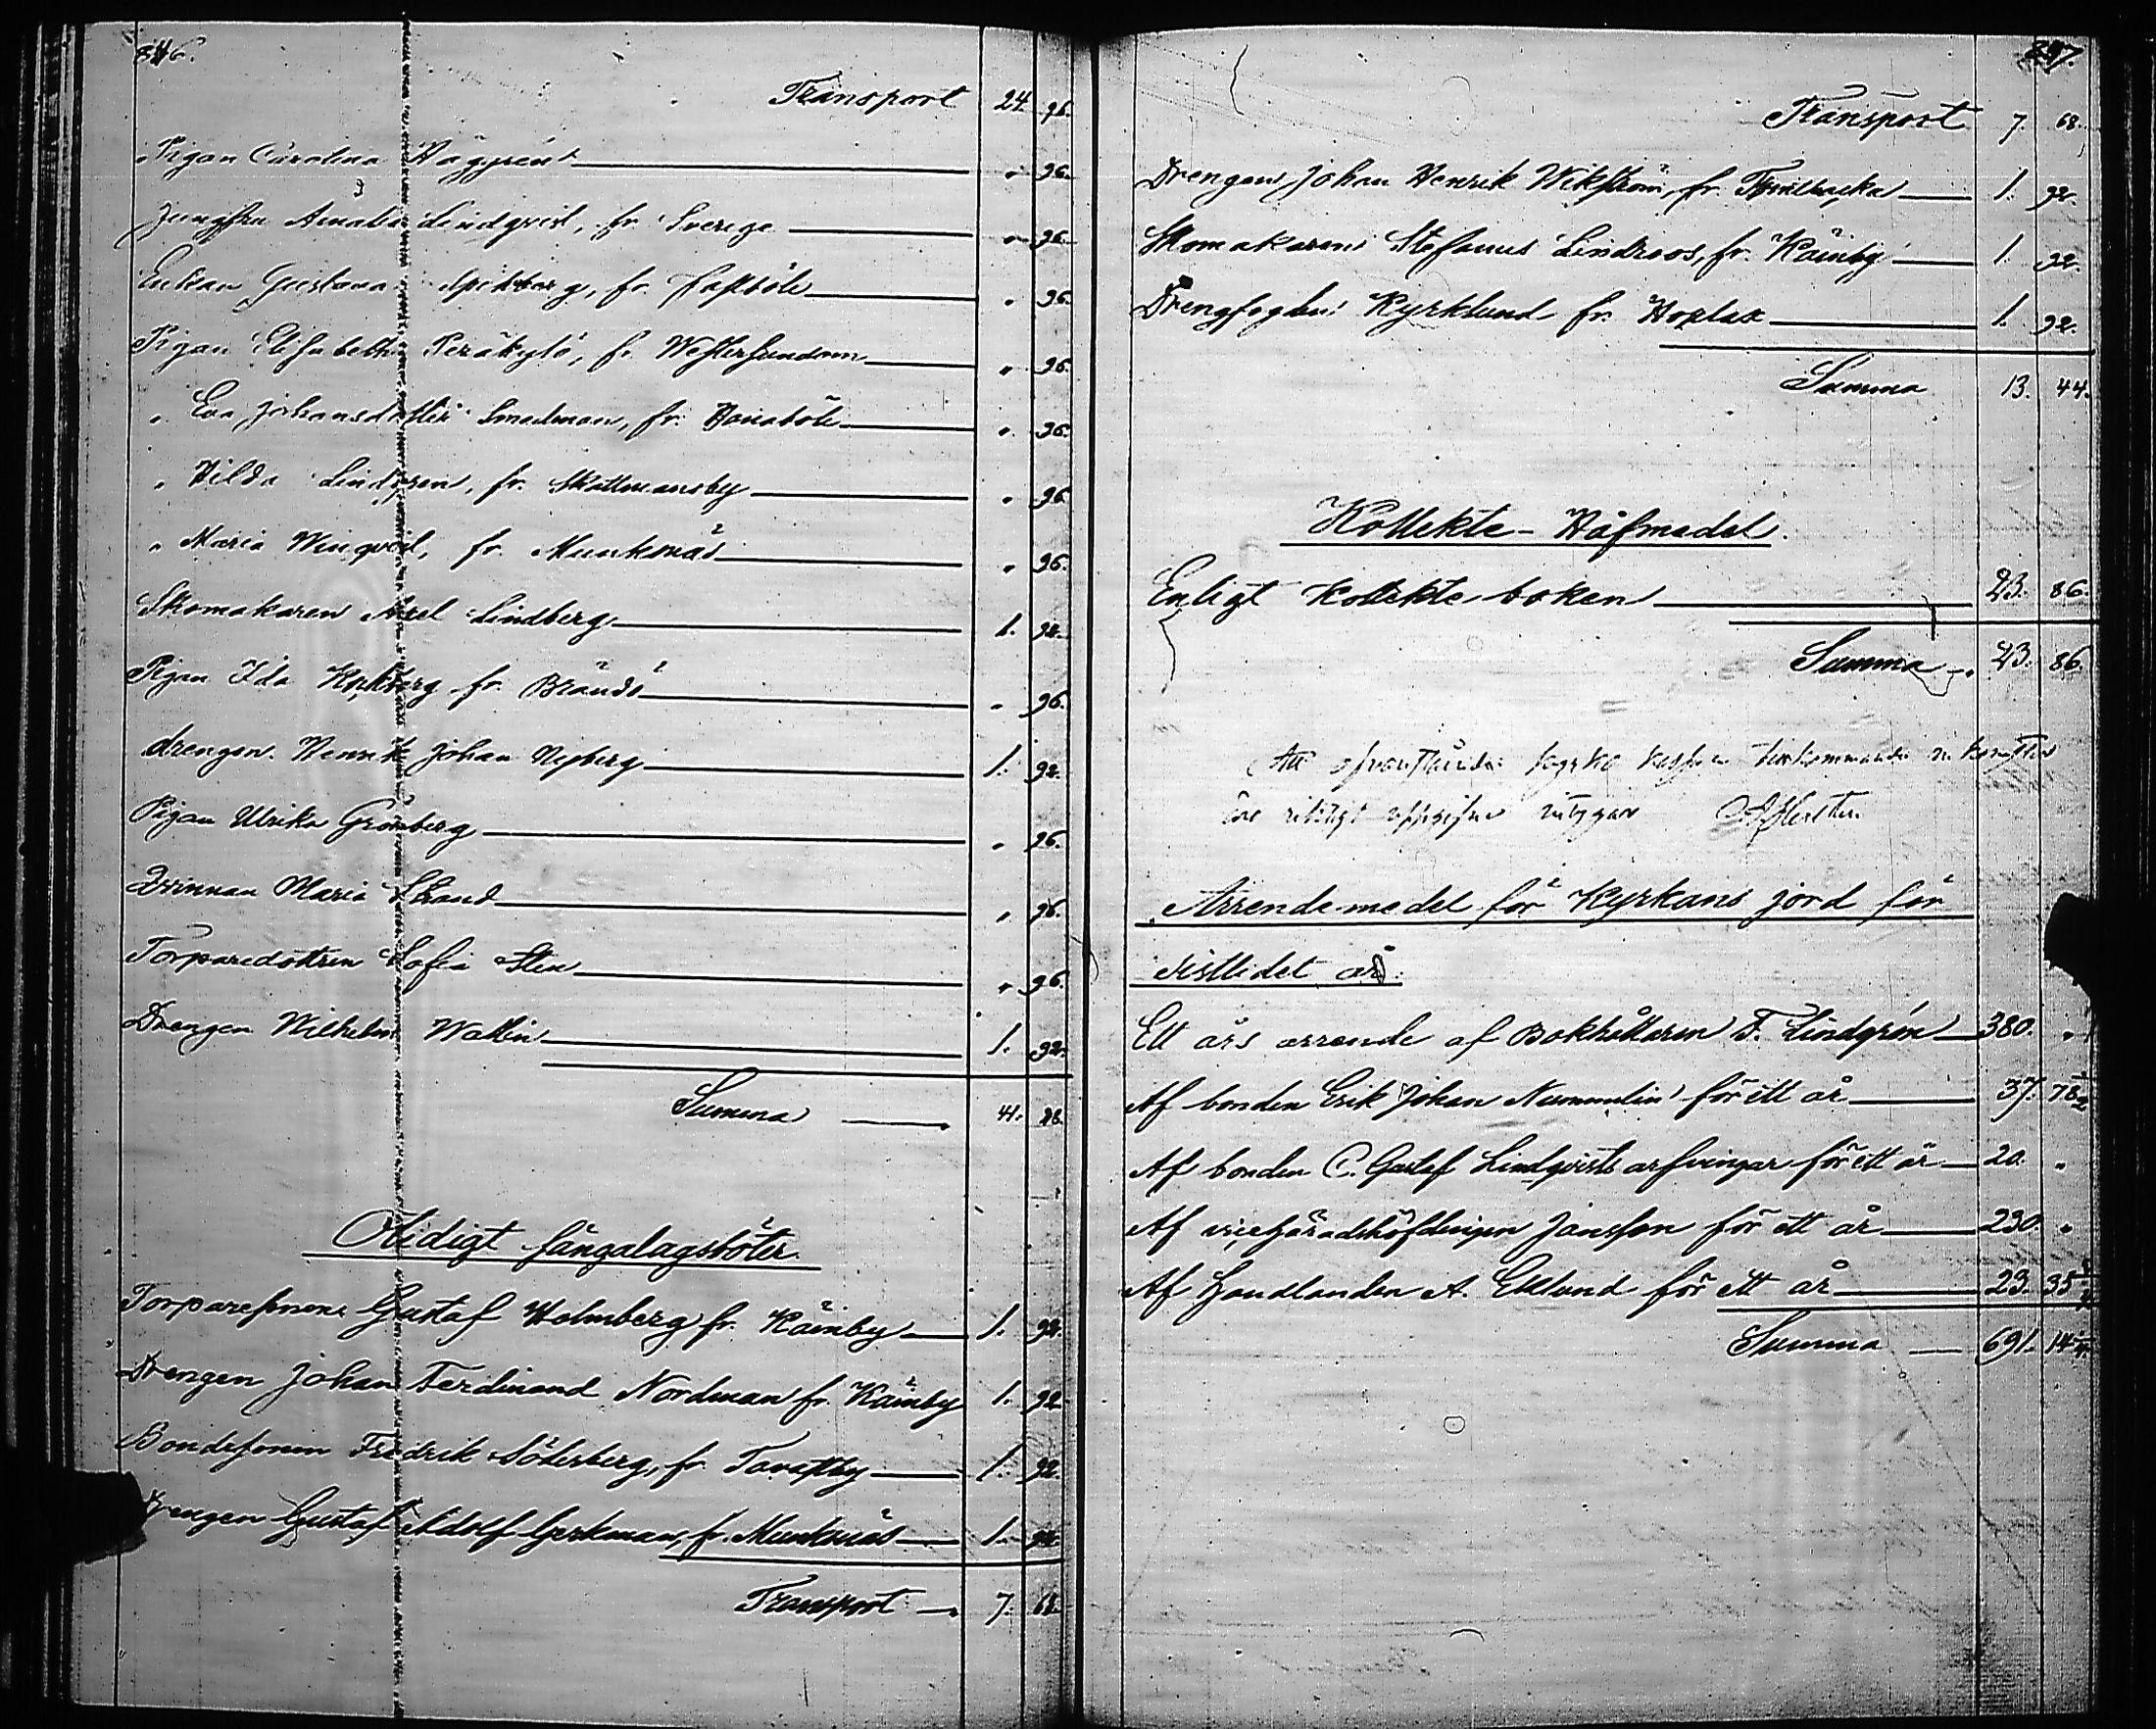 846.
Transport 24. 96.
Pigan Carolina Häggrén " 96.
Jungfru Amalia Lindqvist, fr. Sverige " 96.
Enkan Gustava, fr. " 96.
Pigan Elisabeth Peräkylä, fr. Westersundom " 96.
" Eva Johansdotter Smedman, fr. " 96.
" Hilda Lindgren, fr. Skattmansby " 96.
" Maria Winqvist, fr. Munksnäs " 96.
Skomakaren Axel Lindberg 1. 92.
Pigan Ida fr. Brändö " 96.
drengen Henrik Johan Nyberg 1. 92.
Pigan Ulrika Grönberg " 96.
Qvinnan Maria Strand " 96.
Torparedottren Sofia Sten " 96.
Drengen Wilhelm Wallin 1. 92.
Summa 41. 28.
Otidigt sängalagsböter.
Torparesonen Gustaf Holmberg fr. Käinby 1. 92.
Drengen Johan Ferdinand Nordman fr. Käinby 1. 92.
Bondesonen Fredrik Söderberg, fr. Tavastby 1. 92.
Drengen Gustaf Adolf Gerkman, fr. Munksnäs 1. 92.
Transport 7. 68.
847.
Transport 7. 68.
Drengen Johan Henrik Wikström, fr. 1. 92.
Skomakaren Stefanus Lindroos, fr. Käinby 1. 92.
Drengfogden Kyrklund fr. Hoplax 1. 92.
Summa 13. 44.
Kollekte-Håfmedel.
Enligt Kollekte boken 23. 86.
Summa 23. 86.
Att ofvanstående
riktigt uppgifne intygar
Arrendemedel för Kyrkans jord för
sistlidet år.
Ett års arrende af Bokhållaren F. Lindgrén 380. "
Af bonden Erik Johan Nummelin för ett år 37. 78 1/2
Af bonden C. Gustaf Lindqvists arfvingar för ett år 20. "
Af vicehäradshöfdingen Jansson för ett år 230. "
Af Handlanden A. Eklund för ett år 23. 35 3/4
Summa 691. 14 1/4